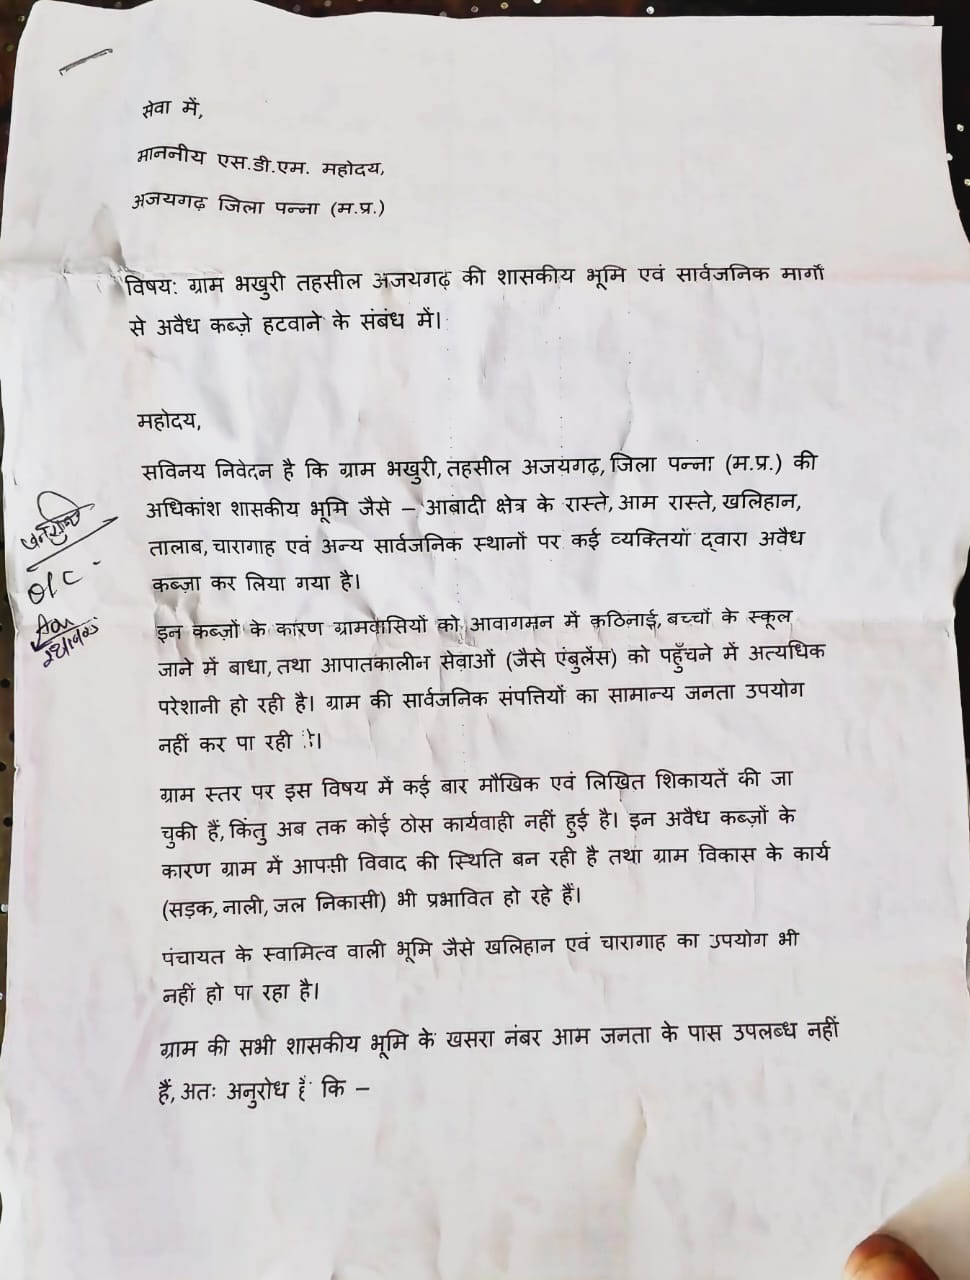 सेवा में,
माननीय एस.डी.एम. महोदय,
अजयगढ़ जिला पन्ना (म.प्र.)
विषय: ग्राम भखुरी तहसील अजयगढ़ की शासकीय भूमि एवं सार्वजनिक मार्गों
से अवैध कब्ज़े हटवाने के संबंध में।
महोदय,
सविनय निवेदन है कि ग्राम भखुरी, तहसील अजयगढ़, जिला पन्ना (म.प्र.) की
अधिकांश शासकीय भूमि जैसे – आबादी क्षेत्र के रास्ते, आम रास्ते, खलिहान,
तालाब, चारागाह एवं अन्य सार्वजनिक स्थानों पर कई व्यक्तियों द्वारा अवैध
कब्ज़ा कर लिया गया है।
इन कब्ज़ों के कारण ग्रामवासियों को आवागमन में कठिनाई, बच्चों के स्कूल
जाने में बाधा, तथा आपातकालीन सेवाओं (जैसे एंबुलेंस) को पहुँचने में अत्यधिक
परेशानी हो रही है। ग्राम की सार्वजनिक संपत्तियों का सामान्य जनता उपयोग
नहीं कर पा रही
ग्राम स्तर पर इस विषय में कई बार मौखिक एवं लिखित शिकायतें की जा
चुकी हैं, किंतु अब तक कोई ठोस कार्यवाही नहीं हुई है। इन अवैध कब्ज़ों के
कारण ग्राम में आपसी विवाद की स्थिति बन रही है तथा ग्राम विकास के कार्य
(सड़क, नाली, जल निकासी) भी प्रभावित हो रहे हैं।
पंचायत के स्वामित्व वाली भूमि जैसे खलिहान एवं चारागाह का उपयोग भी
नहीं हो पा रहा है।
ग्राम की सभी शासकीय भूमि के खसरा नंबर आम जनता के पास उपलब्ध नहीं
हैं, अतः अनुरोध है कि –
O/C